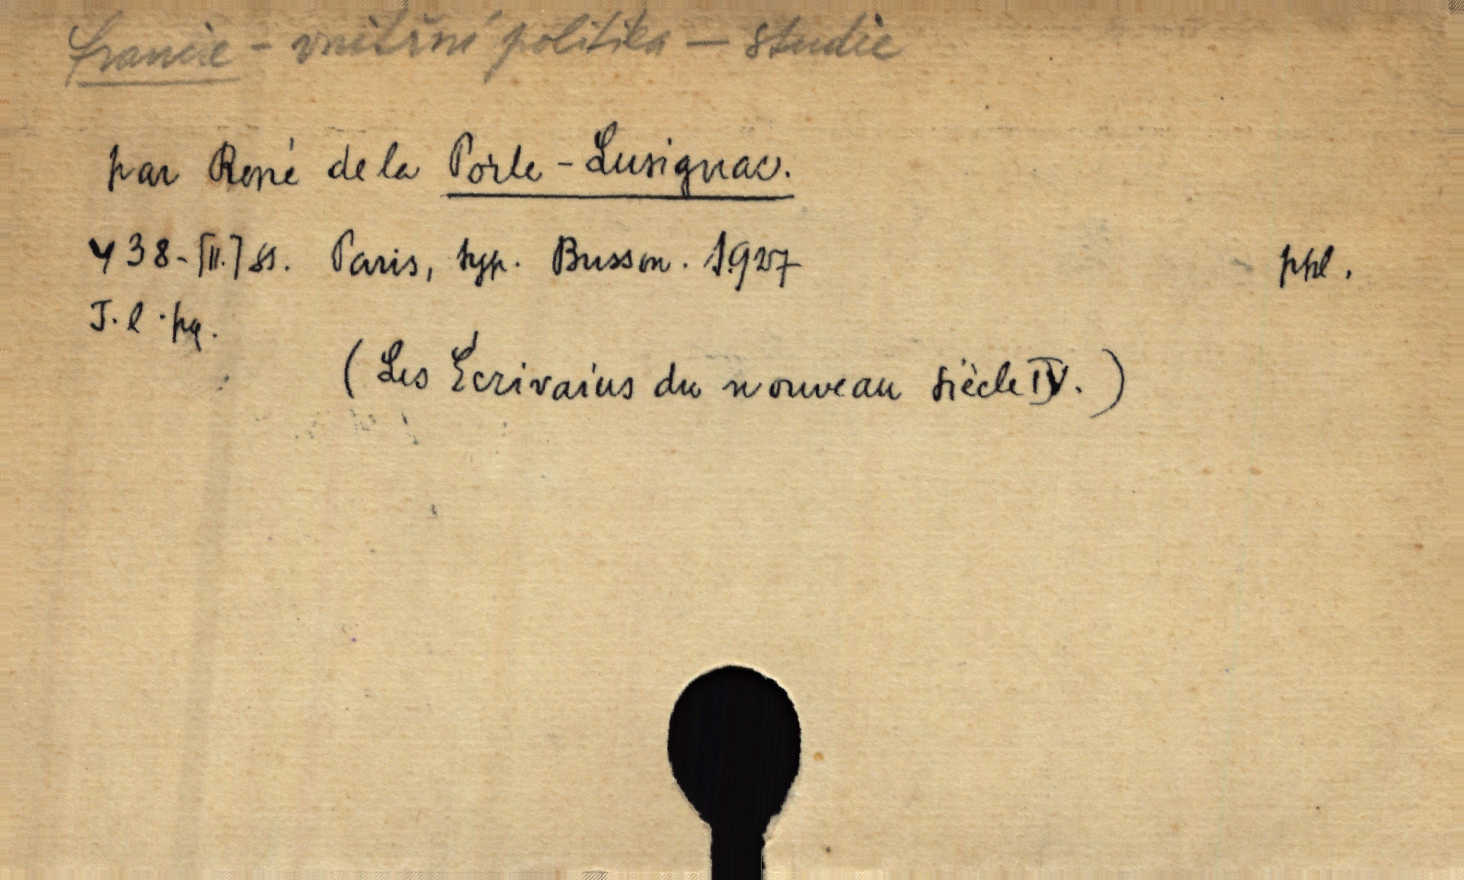 Francie - vnitřní politika - studie
par René de la Porte-Lusignac.
438-[II.] ss. Paris, typ. Busson. 1927 ppl.
J. l. pg.
(Les Écrivains du nouveau siècle IV.)